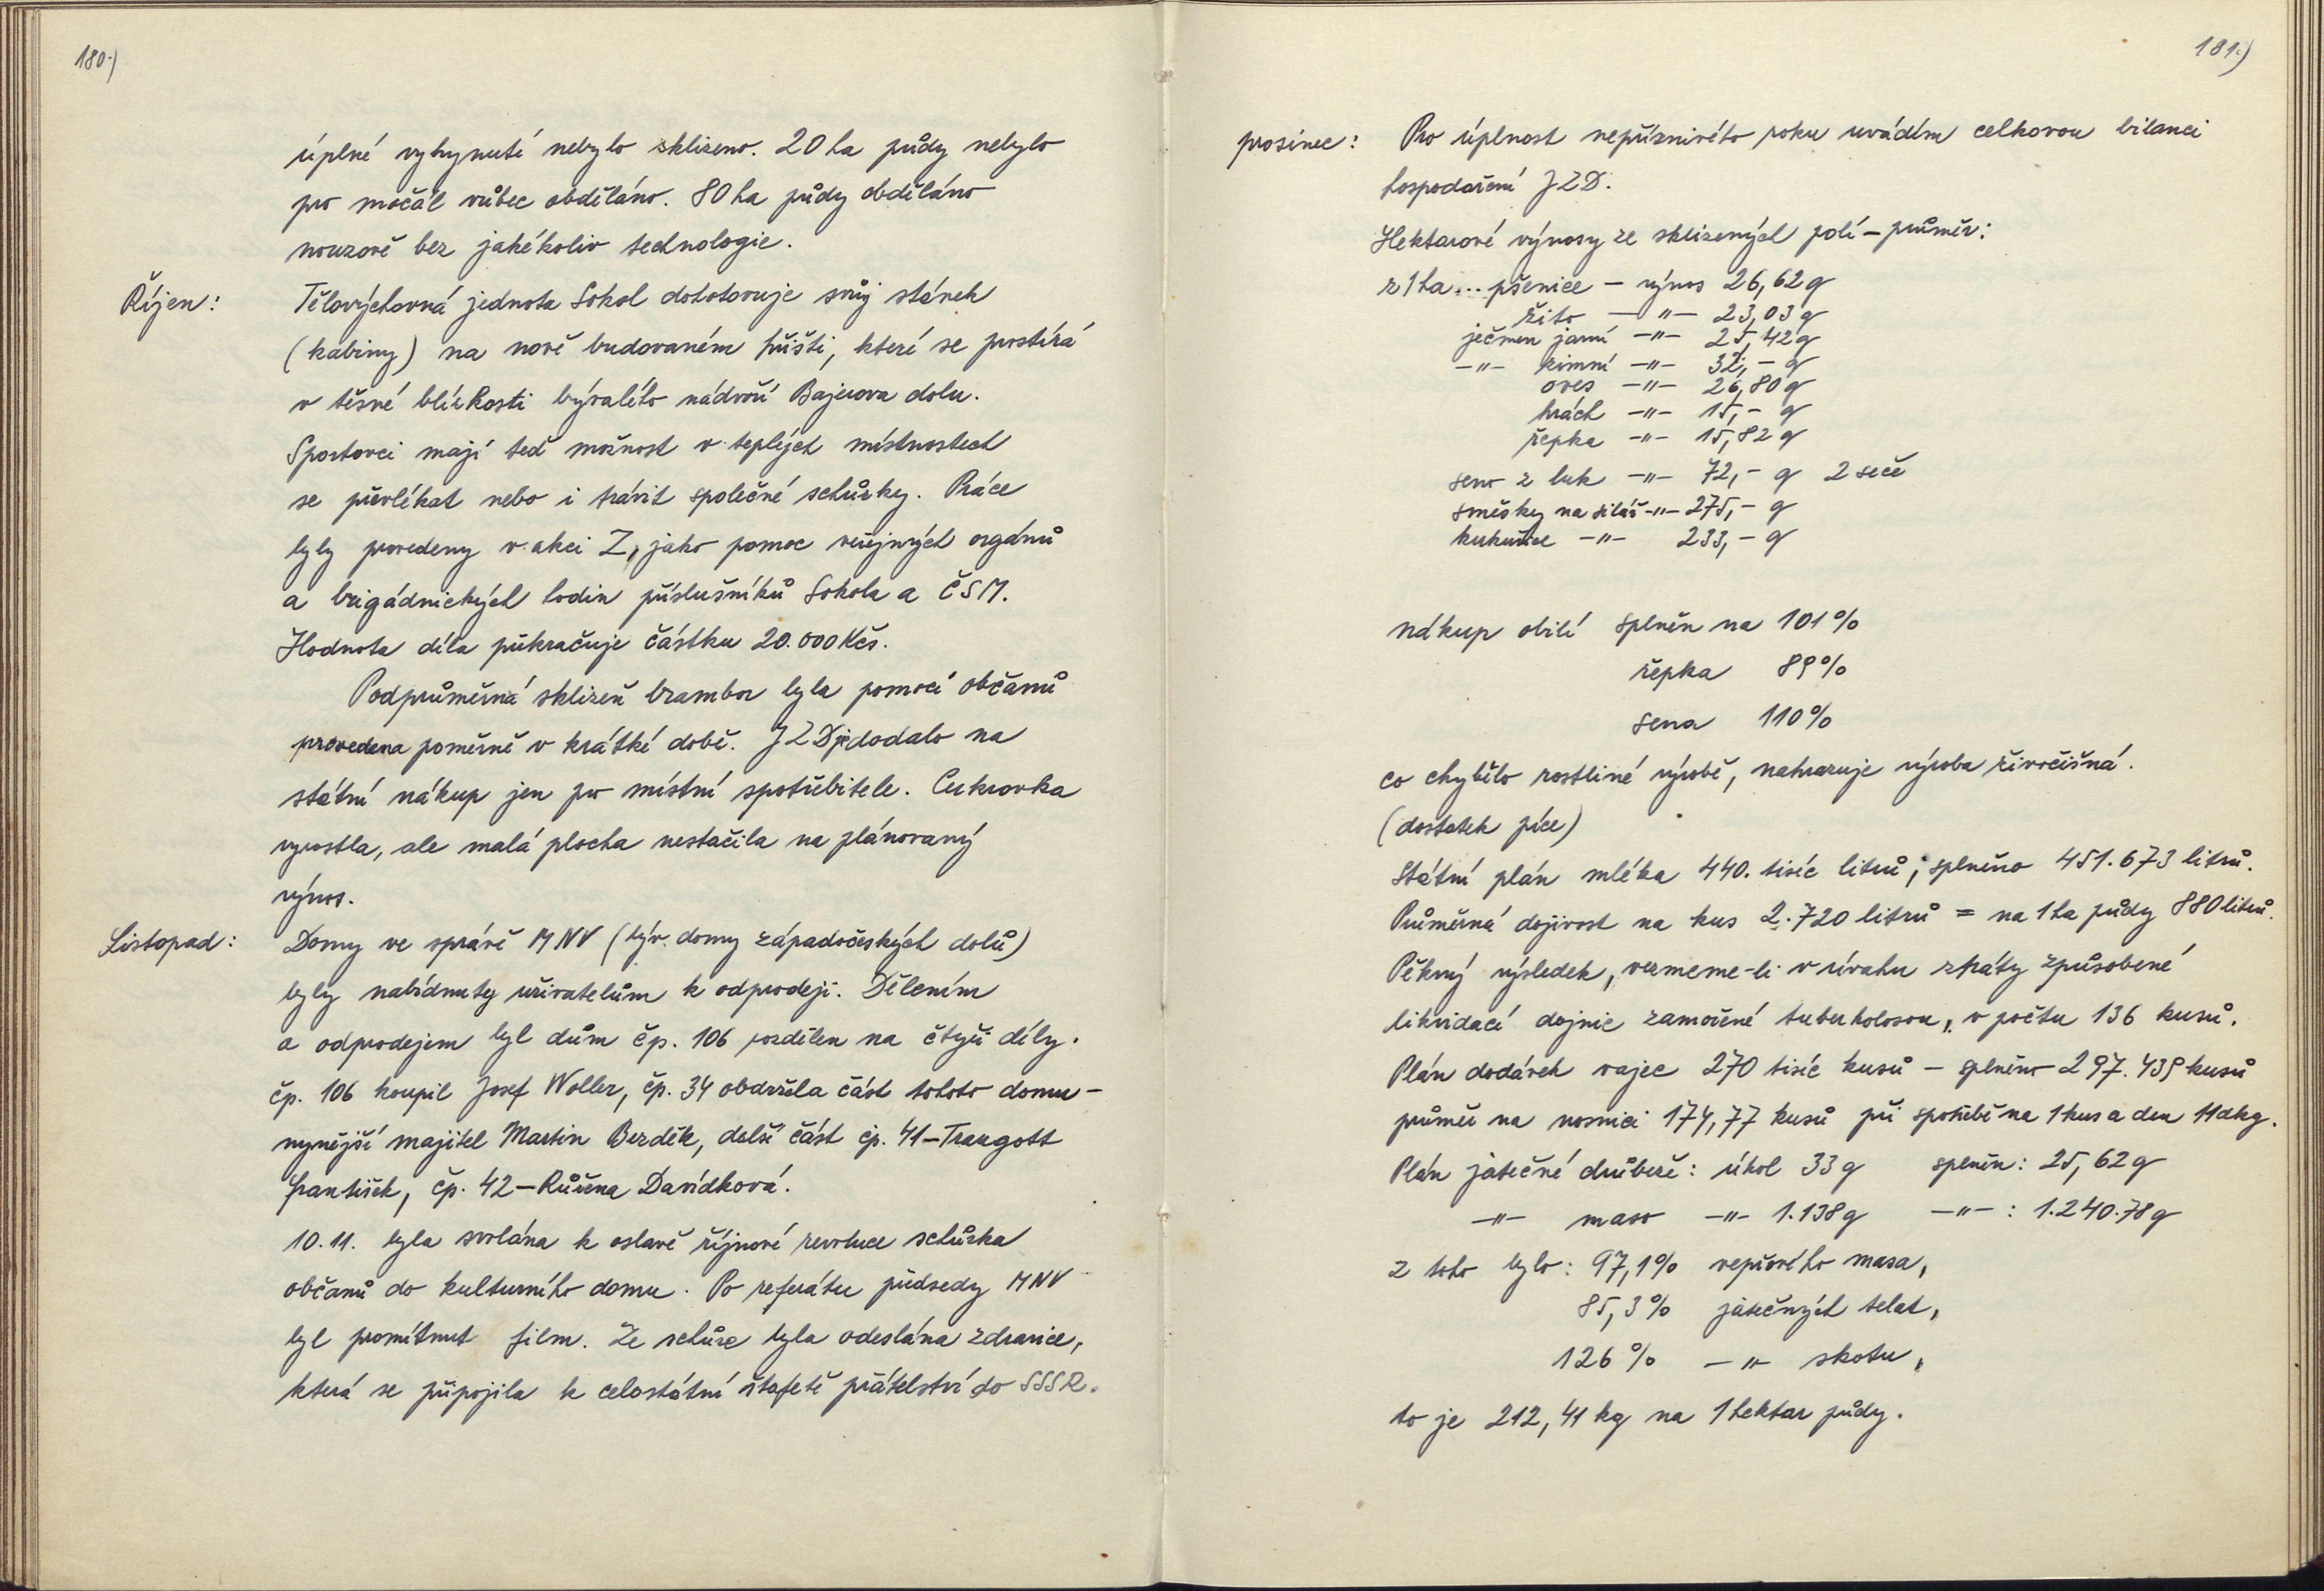 180.)
úplné vyhynutí nebylo sklizeno. 20 ha půdy nebylo
pro močál vůbec obděláno. 80 ha půdy obděláno
nouzově bez jakékoliv technologie.
Říjen: Tělovýchovná jednota Sokol dohotovuje svůj stánek
(kabiny) na nově budovaném hřišti, které se prostírá
v těsné blízkosti bývalého nádvoří Bajerova dolu.
Sportovci mají teď možnost v teplých místnostech
se převlékat nebo i trávit společné schůzky. Práce
byly provedeny v akci Z, jako pomoc veřejných orgánů
a brigádnických hodin příslušníků Sokola a ČSM.
Hodnota díla překračuje částku 20.000 Kčs.
Podprůměrná sklizeň brambor byla pomocí občanů
provedena poměrně v krátké době. JZD je dodalo na
státní nákup jen pro místní spotřebitele. Cukrovka
vyrostla, ale malá plocha nestačila na plánovaný
výnos.
Listopad: Domy ve správě MNV (býv. domy západočeských dolů)
byly nabídnuty uživatelům k odprodeji. Dělením
a odprodejem byl dům čp. 106 rozdělen na čtyři díly.
čp. 106 koupil Josef Woller, čp. 34 obdržela část tohoto domu -
nynější majitel Martin Bezděk, další část čp. 41 - Traugott
František, čp. 42 - Růžena Davídková.
10.11. byla svolána k oslavě říjnové revoluce schůzka
občanů do kulturního domu. Po referátu předsedy MNV
byl promítnut film. Ze schůze byla odeslána zdravice,
která se připojila k celostátní štafetě přátelství do SSSR.
181.)
prosinec: Pro úplnost nepříznivého roku uvádím celkovou bilanci
hospodaření JZD.
Hektarové výnosy ze sklizených polí - průměr:
z 1 ha... pšenice - výnos 26,62 q
žito - " - 23,03 q
ječmen jarní - " - 25,42 q
- " - zimní - " - 32,- q
oves - " - 26,80 q
hrách - " - 15,- q
řepka - " - 15,82 q
seno z luk - " - 72,- q 2 seče
směsky na siláž - " - 275,- q
kukuřice - " - 233,- q
nákup obilí splněn na 101 %
řepka 89 %
sena 110 %
co chybělo rostliné výrobě, nahrazuje výroba živočišná.
(dostatek píce)
Státní plán mléka 440. tisíc litrů; splněno 451.673 litrů.
Průměrná dojivost na kus 2.720 litrů = na 1 ha půdy 880 litrů.
Pěkný výsledek, vezmeme-li v úvahu ztráty způsobené
likvidací dojnic zamořené tuberkolosou, v počtu 136 kusů.
Plán dodávek vajec 270 tisíc kusů - splněno 297.439 kusů
průměr na nosnici 174,77 kusů při spotřebě na 1 kus a den 11 dkg.
Plán jatečné drůbeže: úkol 33 q splněn: 25,62 q
- " - maso - " - 1.138 q - " - : 1.240.78 q
z toho bylo: 97,1 % vepřového masa,
85,3 % jatečných telat,
126 % - " - skotu,
to je 212,41 kg na 1 hektar půdy.